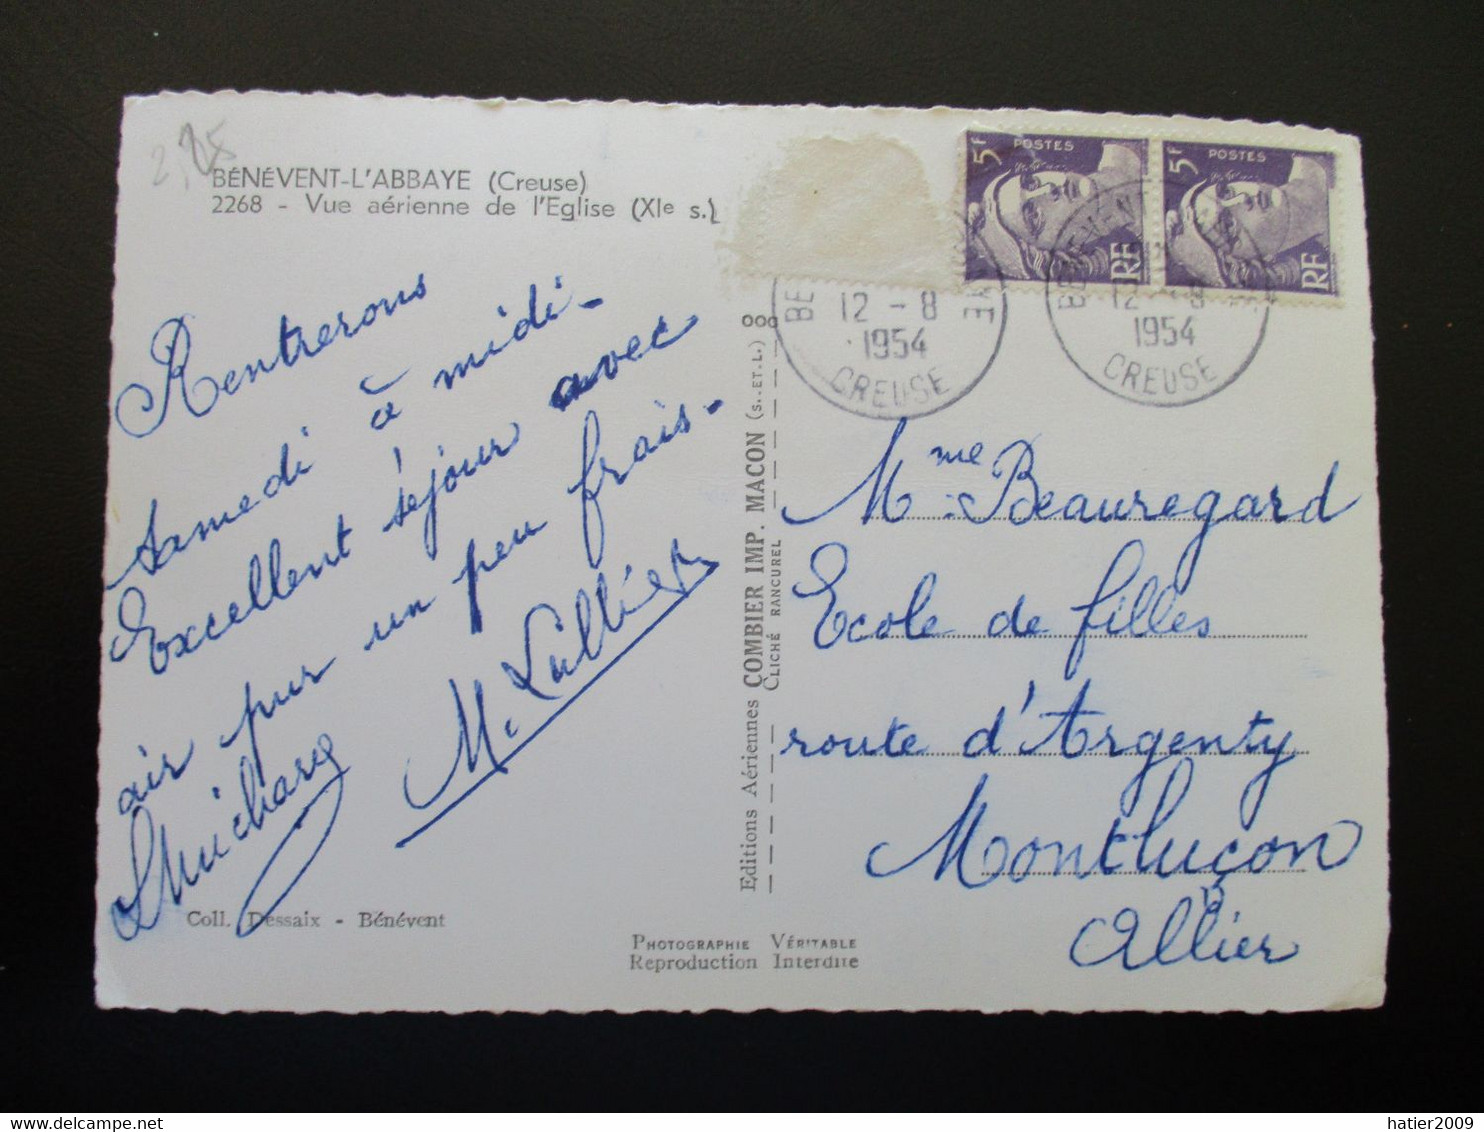 2,25
BÉNÉVENT-L'ABBAYE (Creuse)
2268 - Vue aérienne de l'Eglise (XIe s.)
Rentrerons
samedi à midi -
Excellent séjour avec
air pur un peu frais -
M. Lallier
Coll. Dessaix - Bénévent
Editions Aériennes COMBIER IMP. MACON (S.-ET-L.)
CLICHÉ RANCUREL
PHOTOGRAPHIE VÉRITABLE
Reproduction Interdite
5F POSTES RF
5F POSTES RF
12 - 8
1954
CREUSE
12 - 8
1954
CREUSE
Mme Beauregard
Ecole de filles
route d'Argenty
Montluçon
Allier
hatier2009